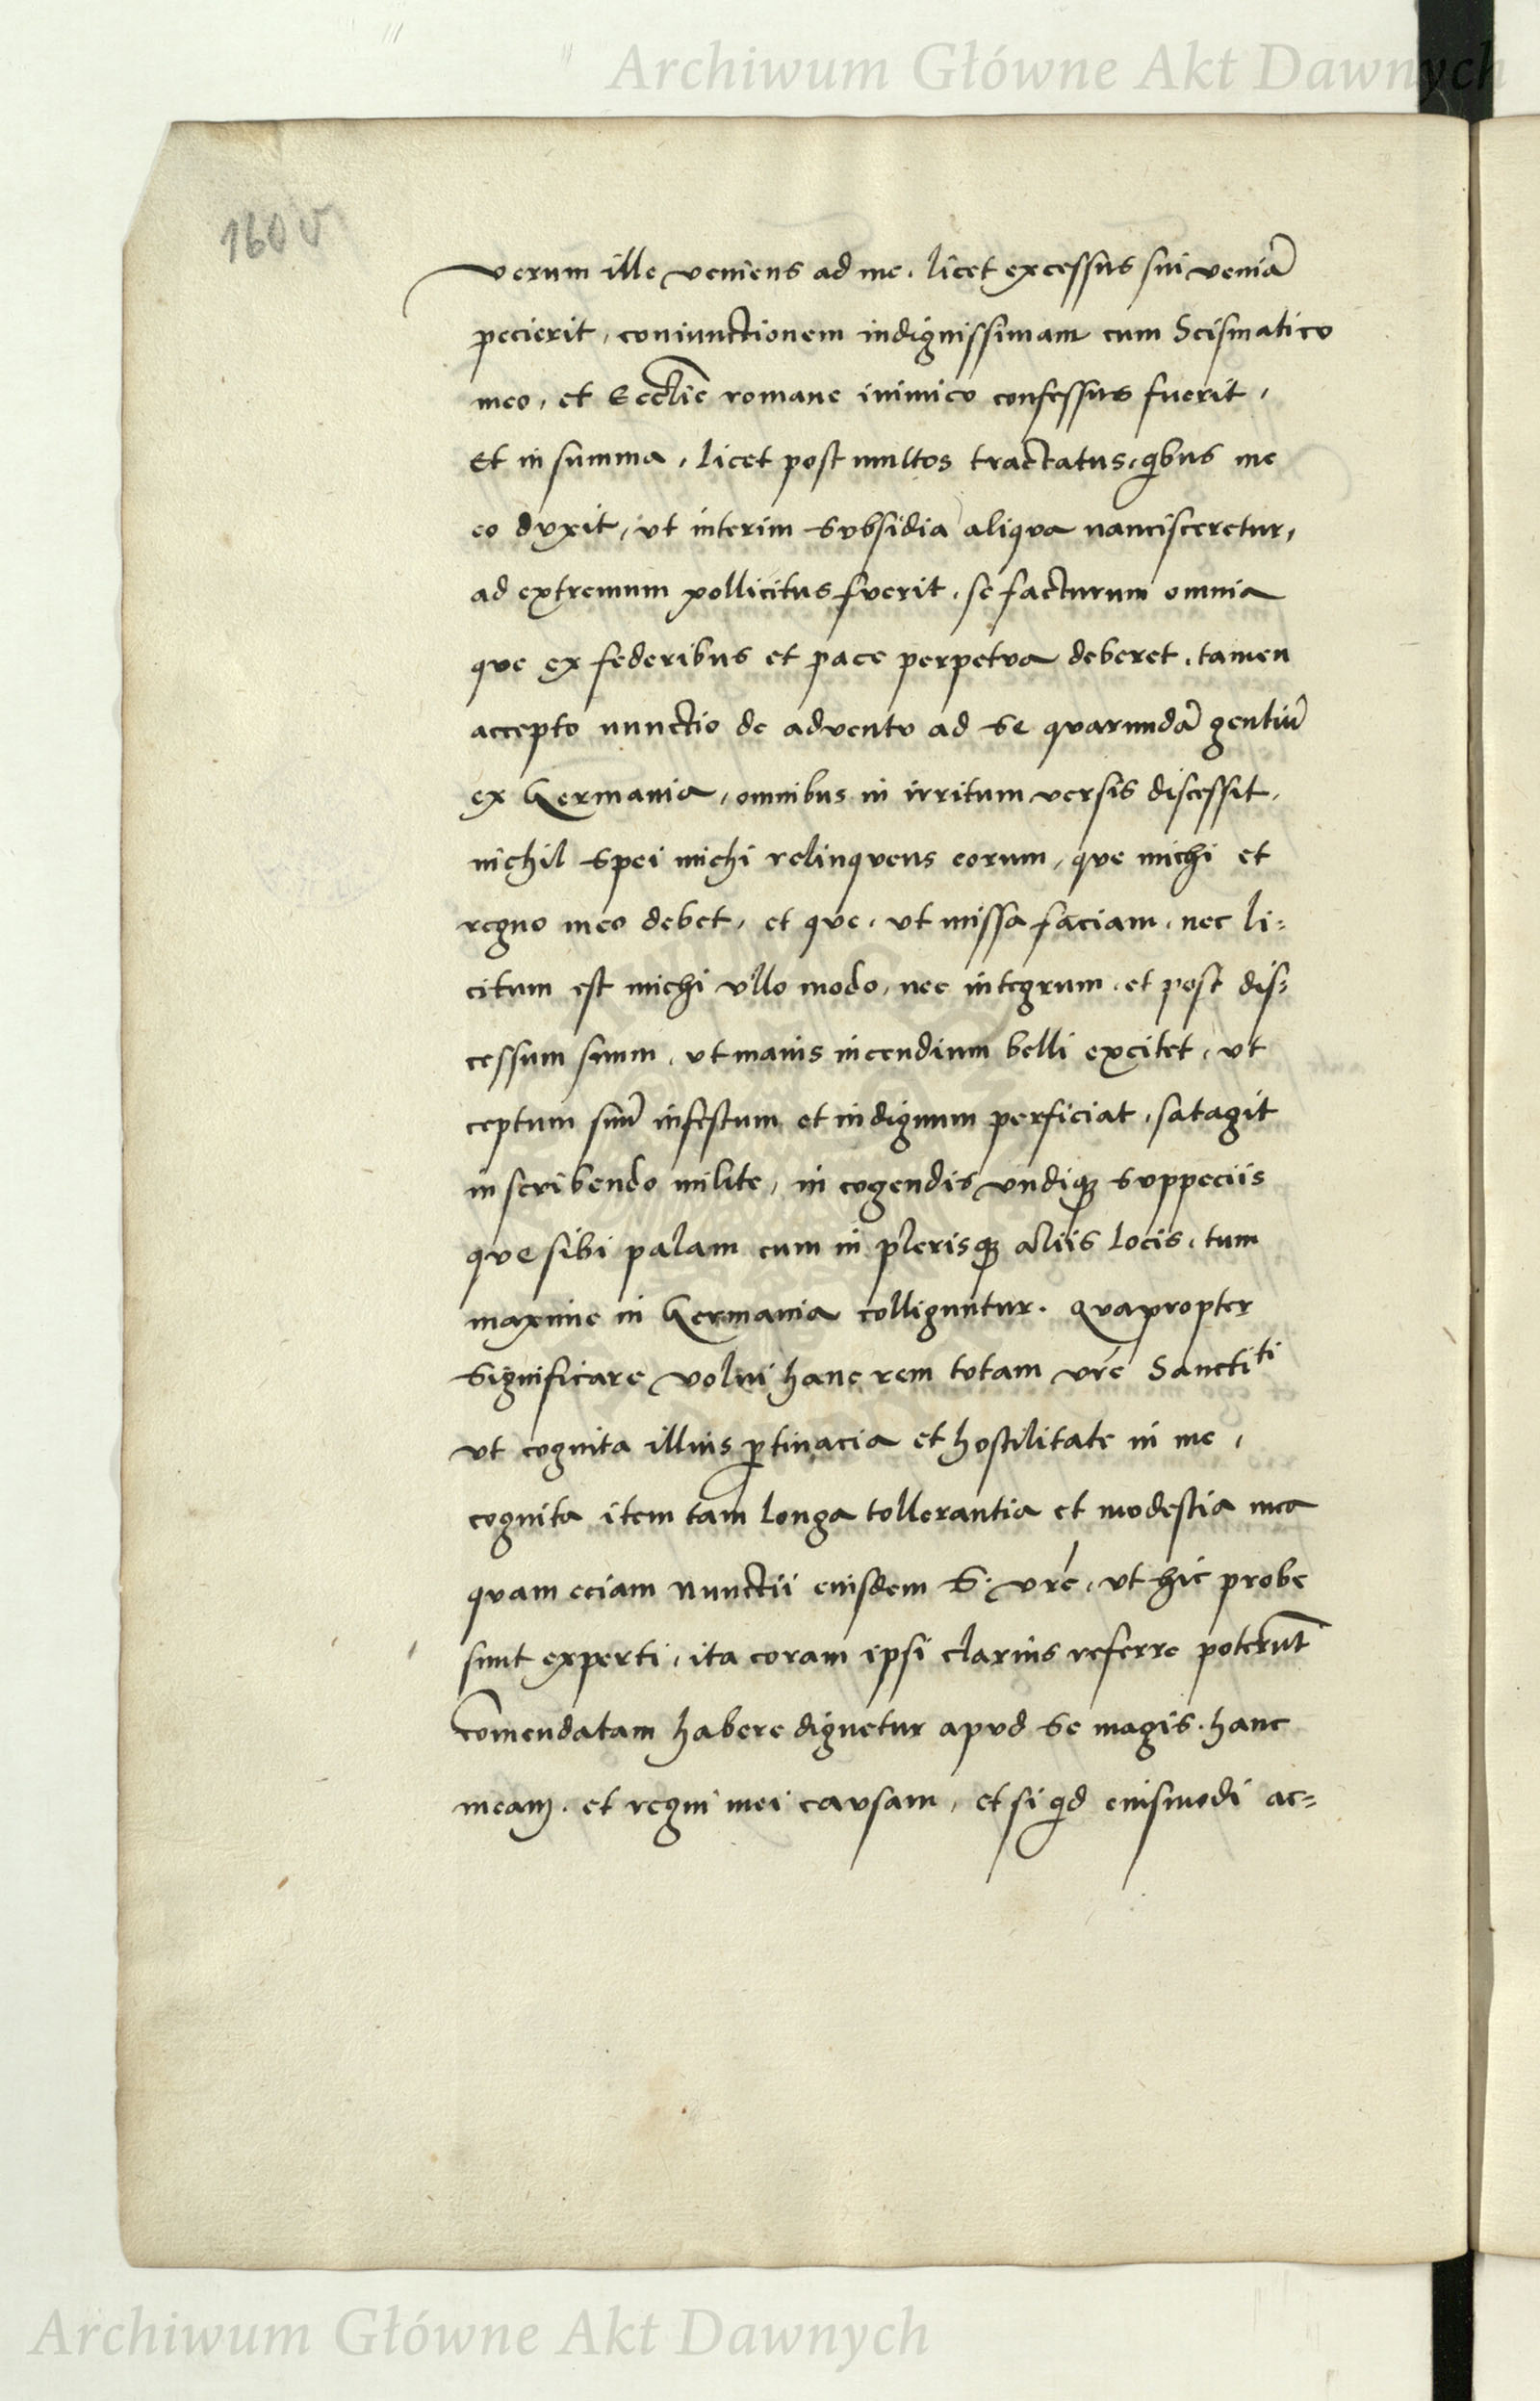 Archiwum Główne Akt Dawnych
160 v
verum ille veniens ad me. licet excessus sui veniā
pecierit, coniunctionem indignissimam cum Scismatico
meo, et Eccl̄ie romane inimico confessus fuerit,
Et in summa, licet post multos tractatus, qibus me
eo duxit, ut interim subsidia aliqua nancisceretur,
ad extremum pollicitus fuerit, se facturum omnia
que ex federibus et pace perpetua deberet, tamen
accepto nunctio de adventu ad se quarundā gentiū
ex Germania, omnibus in irritum versis discessit,
nichil spei michi relinquens eorum, que michi et
regno meo debet, et que, ut missa faciam, nec li=
citum est michi ullo modo, nec integrum, et post dis=
cessum suum, ut maius incendium belli excitet, ut
ceptum suū infestum et indignum perficiat, satagit
in scribendo milite, in cogendis undiqꝫ suppeciis
que sibi palam cum in plerisqꝫ aliis locis, tum
maxime in Germania colliguntur. Quapropter
significare volui hanc rem totam vrē Sanctiti
ut cognita illius ꝑtinacia et hostilitate in me,
cognita item tam longa tollerantia et modestia mea
quam eciam nunctii eiusdem S. vrē, ut hic probe
sunt experti, ita coram ipsi clarius referre poterūt
cōmendatam habere dignetur apud se magis hanc
meam, et regni mei causam, et si qid eiusmodi ac=
Archiwum Główne Akt Dawnych